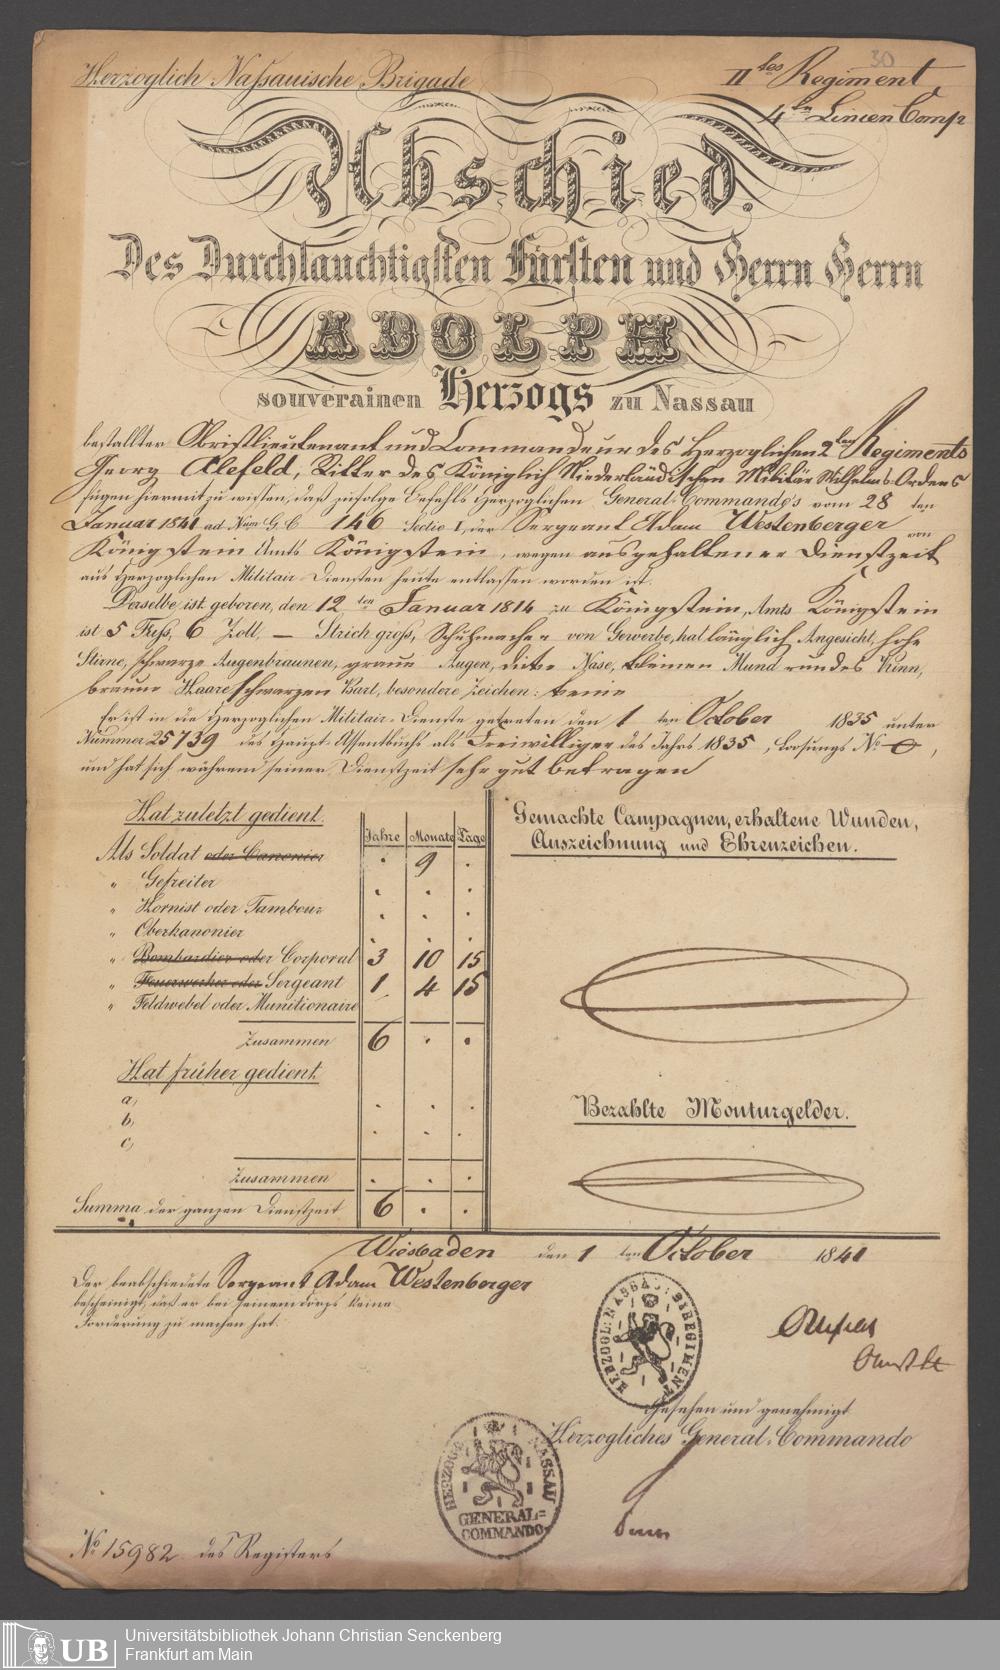 Herzoglich Nassauische Brigade
30
II tes Regiment
4 te Linien Comp
Abschied.
Des Durchlauchtigsten Fürsten und Herrn Herrn
ADOLPH
souverainen Herzogs zu Nassau
bestallter Obristlieutenant und Commandeur des Herzoglichen 2ten Regiments
Georg Alefeld, Ritter des Königlich Niederländischen Militär Wilhelms-Ordens
fügen hiermit zu wissen, daß zufolge Befehls Herzoglichen General-Commando's vom 28 ten
Januar 1841 ad Num G. C. 146 Sectio I, der Sergeant Adam Westenberger von
Königstein Amts Königstein, wegen ausgehaltener Dienstzeit
aus Herzoglichen Militair-Diensten heute entlassen worden ist.
Derselbe ist geboren, den 12 ten Januar 1814 zu Königstein, Amts Königstein
ist 5 Fuß, 6 Zoll, — Strich groß, Schuhmacher von Gewerbe, hat länglich Angesicht, hohe
Stirne, schwarze Augenbraunen, graue Augen, dicke Nase, kleinen Mund rundes Kinn,
braune Haare schwarzen Bart, besondere Zeichen: keine
Er ist in die Herzoglichen Militair-Dienste getreten den 1 ten October 1835 unter
Nummer 25739 des Haupt-Assentbuchs als Freiwilliger des Jahrs 1835, Loosungs No 0,
und hat sich während seiner Dienstzeit sehr gut betragen
Hat zuletzt gedient.
Jahre Monate Tage
Als Soldat oder Canonier . 9 .
" Gefreiter . . .
" Hornist oder Tambour . . .
" Oberkanonier . . .
" Bombardier oder Corporal 3 10 15
" Feuerwerker oder Sergeant 1 4 15
" Feldwebel oder Munitionaire
Zusammen 6 . .
Hat früher gedient
a,
b,
c,
Zusammen . . .
Summa der ganzen Dienstzeit 6 . .
Gemachte Campagnen, erhaltene Wunden,
Auszeichnung und Ehrenzeichen.
Bezahlte Monturgelder.
Wiesbaden den 1 ten October 1841
Der beabschiedete Sergeant Adam Westenberger
bescheinigt, daß er bei seinem Corps keine
Forderung zu machen hat.
HERZOGL: NASSAU: 2s REGIMENT
Gesehen und genehmigt
Herzogliches General-Commando
HERZOGL NASSAU
GENERAL=
COMMANDO
No 15982 des Registers
UB
Universitätsbibliothek Johann Christian Senckenberg
Frankfurt am Main